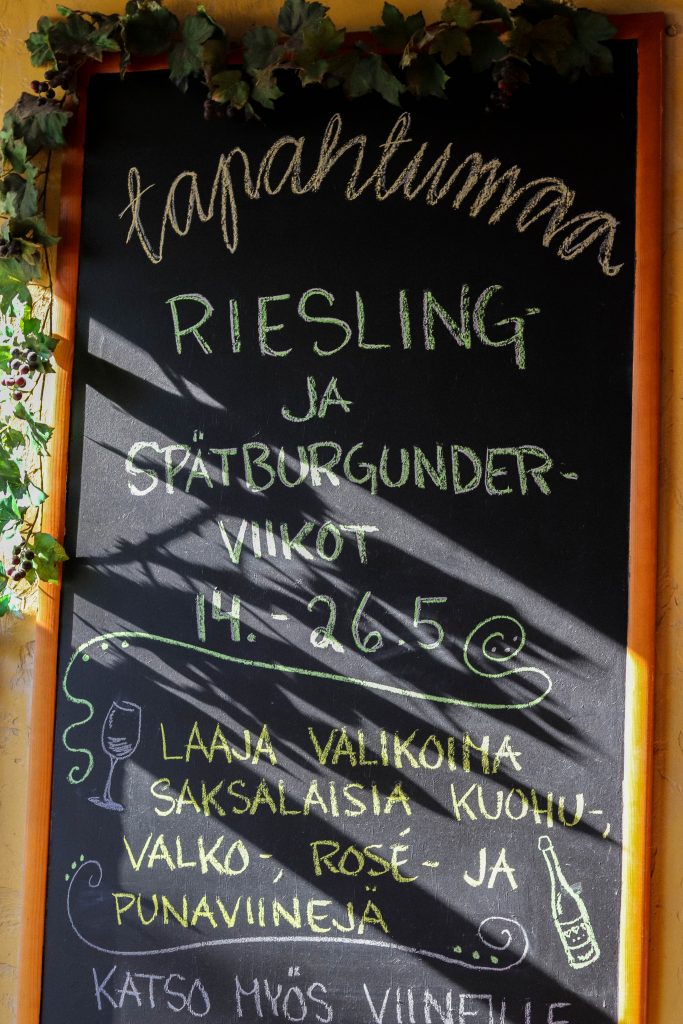 tapahtumaa
RIESLING-
JA
SPÄTBURGUNDER-
VIIKOT
14. - 26.5
LAAJA VALIKOIMA
SAKSALAISIA KUOHU-,
VALKO-, ROSÉ- JA
PUNAVIINEJÄ
KATSO MYÖS VIINEILLE